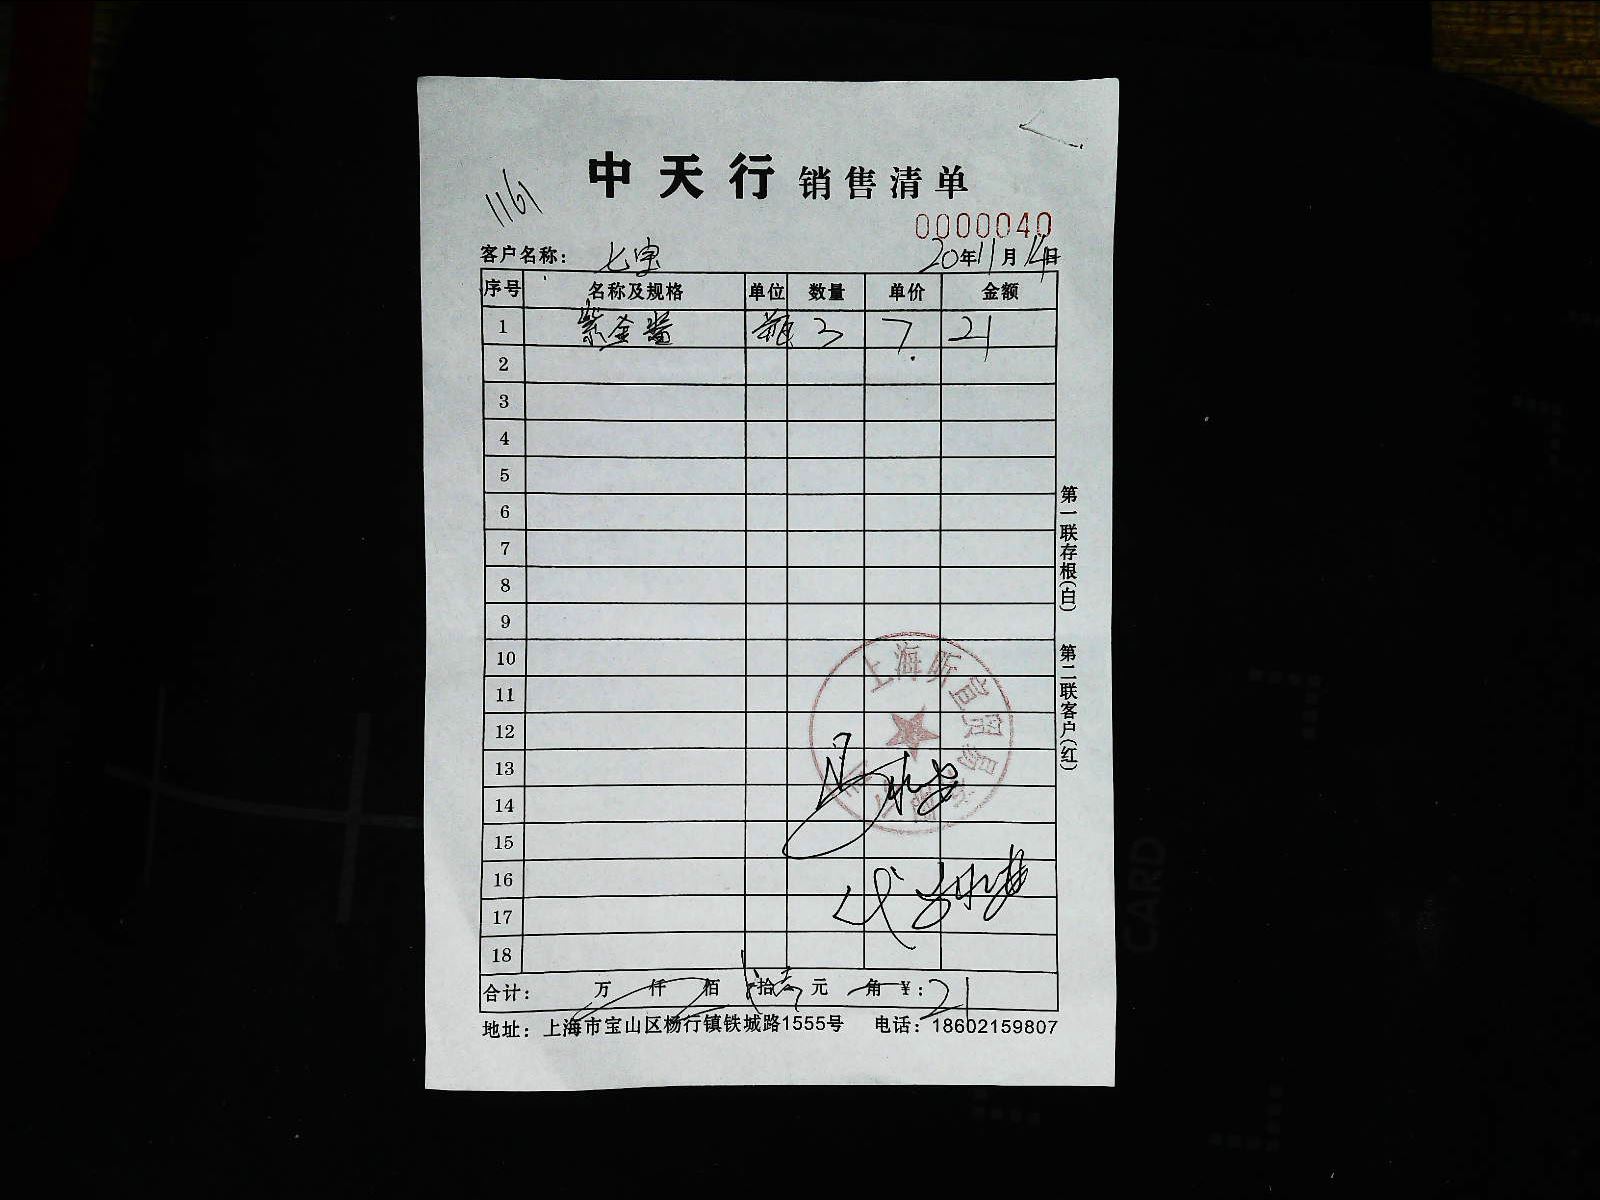 中天行 销售清单
1161
0000040
客户名称： 七宝 20年11月14日
序号 名称及规格 单位 数量 单价 金额
1 紫金酱 瓶 3 7. 21
2
3
4
5
6
7
8
9
10
11
12
13
14
15
16
17
18
合计： 万 仟 佰 贰拾壹元 角 ¥：21
地址：上海市宝山区杨行镇铁城路1555号 电话：18602159807
第一联存根(白) 第二联客户(红)
上海昕宣贸易有限公司
代